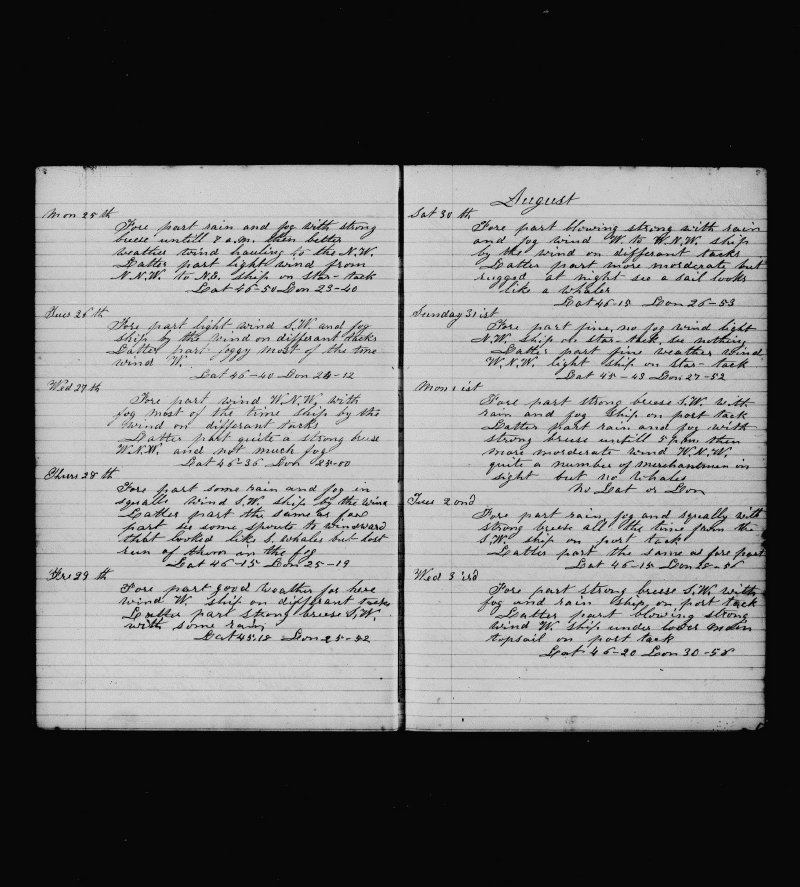 Mon 25 th
Fore part rain and fog with strong
breese untill 8 a.m. then better
weather wind hauling to the N.W.
Latter part light wind from
N.N.W. to N.E. ship on star-tack
Lat 46-50 Lon 23-40
Tues 26 th
Fore part light wind S.W. and fog
ship by the wind on differant tacks
Latter part foggy most of the time
wind W.
Lat 46-40 Lon 24-12
Wed 27 th
Fore part wind W.N.W, with
fog most of the time ship by the
wind on differant tacks
Latter part quite a strong breese
W.N.W. and not much fog
Lat 46-36 Lon 25-00
Thurs 28 th
Fore part some rain and fog in
squalls wind S.W. ship by the wind
Latter part the same as fore
part see some spouts to windward
that looked like S. whales but lost
run of them in the fog
Lat 46-15 Lon 25-19
Fri 29 th
Fore part good weather for here
wind W. ship on differant tacks
Latter part strong breese S.W.
with some rain
Lat 45-18 Lon 25-52
August
Sat 30 th
Fore part blowing strong with rain
and fog wind W. to W.N.W. ship
by the wind on different tacks
Latter part more morderate but
rugged at night see a sail looks
like a whaler
Lat 46-15 Lon 26-53
Sunday 31 ist
Fore part fine, no fog wind light
N.W. ship on star-tack, see nothing
Latter part fine weather wind
W.N.W. light ship on star-tack
Lat 45-43 Lon 27-52
Mon 1 ist
Fore part strong breese S.W. with
rain and fog ship on port tack
Latter part rain and fog with
strong breese untill 5 p.m. then
more morderate wind W.N.W
quite a number of merchantmen in
sight but no whales
No Lat or Lon
Tues 2 ond
Fore part rain, fog and squally with
strong breese all the time from the
S.W. ship on port tack
Latter part the same as fore part
Lat 46-15 Lon 28-56
Wed 3 ird
Fore part strong breese S.W. with
fog and rain ship on port tack
Latter part blowing strong
wind W. ship under lower main
topsail on port tack
Lat 46-20 Lon 30-58